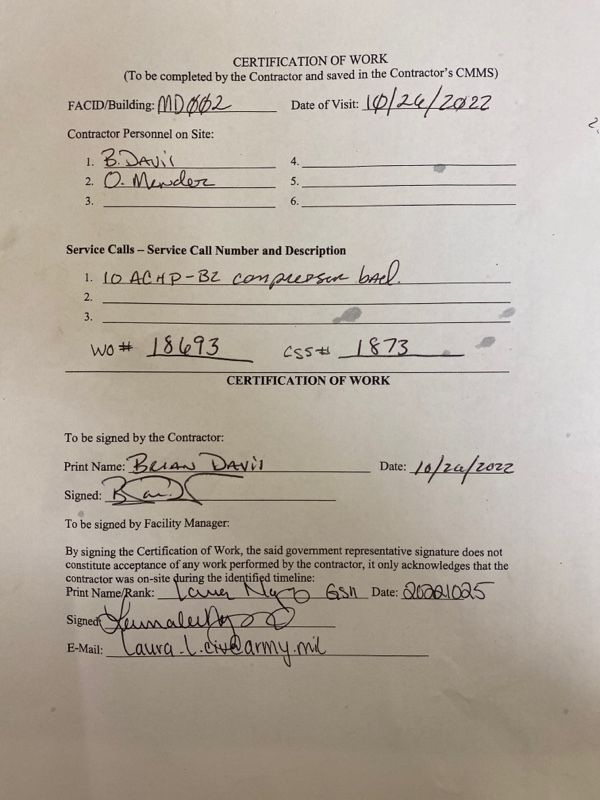 CERTIFICATION OF WORK
(To be completed by the Contractor and saved in the Contractor's CMMS)
FACID/Building: MD002 Date of Visit: 10/26/2022
Contractor Personnel on Site:
1. B. Davis 4.
2. O. Mendez 5.
3. 6.
Service Calls – Service Call Number and Description
1. 10 ACHP-B2 compressor bad.
2.
3.
WO# 18693 CSS# 1873
CERTIFICATION OF WORK
To be signed by the Contractor:
Print Name: BRIAN DAVIS Date: 10/26/2022
Signed:
To be signed by Facility Manager:
By signing the Certification of Work, the said government representative signature does not
constitute acceptance of any work performed by the contractor, it only acknowledges that the
contractor was on-site during the identified timeline:
Print Name/Rank: Laura GS11 Date: 20221025
Signed:
E-Mail: Laura.L.civ@army.mil